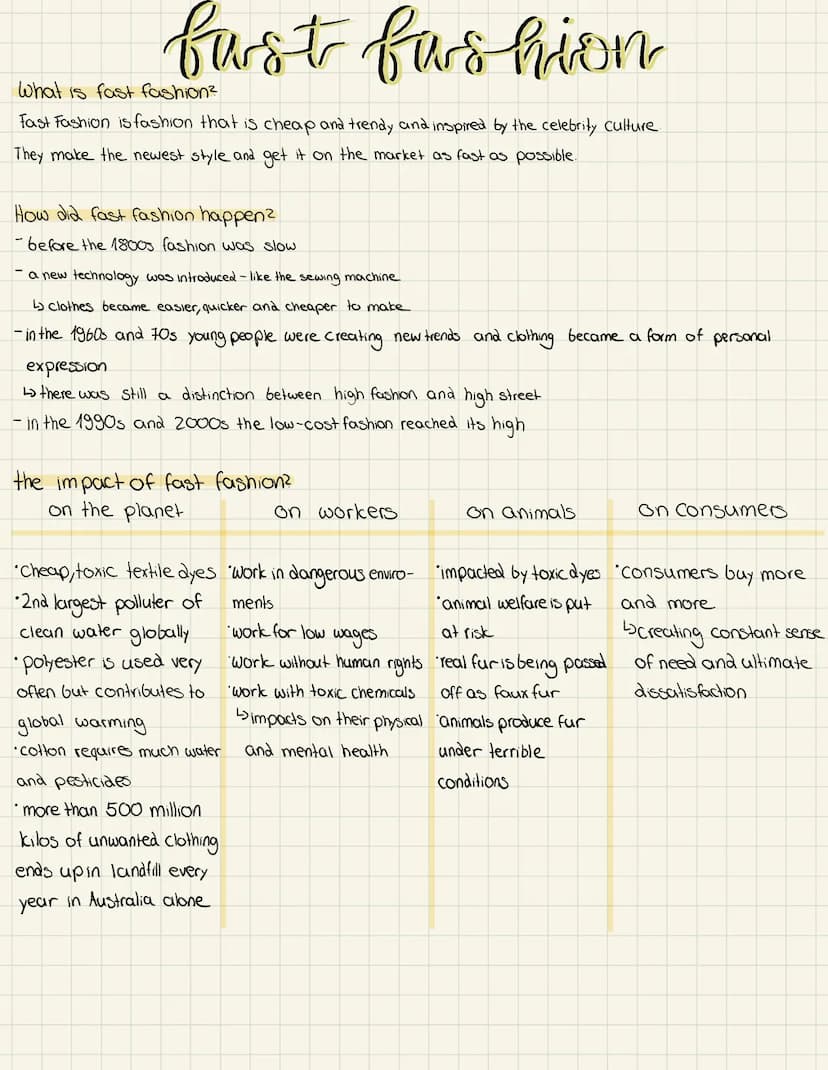 fast fashion
What is fast fashion?
Fast Fashion is fashion that is cheap and trendy and inspired by the celebrity culture.
They make the newest style and get it on the market as fast as possible.
How did fast fashion happen?
- before the 1800s fashion was slow
- a new technology was introduced - like the sewing machine
↳ clothes became easier, quicker and cheaper to make
- in the 1960s and 70s young people were creating new trends and clothing became a form of personal
expression
↳ there was still a distinction between high fashion and high street
- in the 1990s and 2000s the low-cost fashion reached its high
the impact of fast fashion?
on the planet
· Cheap, toxic textile dyes
· 2nd largest polluter of
clean water globally
· polyester is used very
often but contributes to
global warming
· cotton requires much water
and pesticides
· more than 500 million
kilos of unwanted clothing
ends up in landfill every
year in Australia alone
on workers
· work in dangerous enviro-
ments
· work for low wages
· work without human rights
· work with toxic chemicals
↳ impacts on their physical
and mental health
on animals
· impacted by toxic dyes
· animal welfare is put
at risk
· real fur is being passed
off as faux fur
· animals produce fur
under terrible
conditions
on consumers
· consumers buy more
and more
↳ creating constant sense
of need and ultimate
dissatisfaction